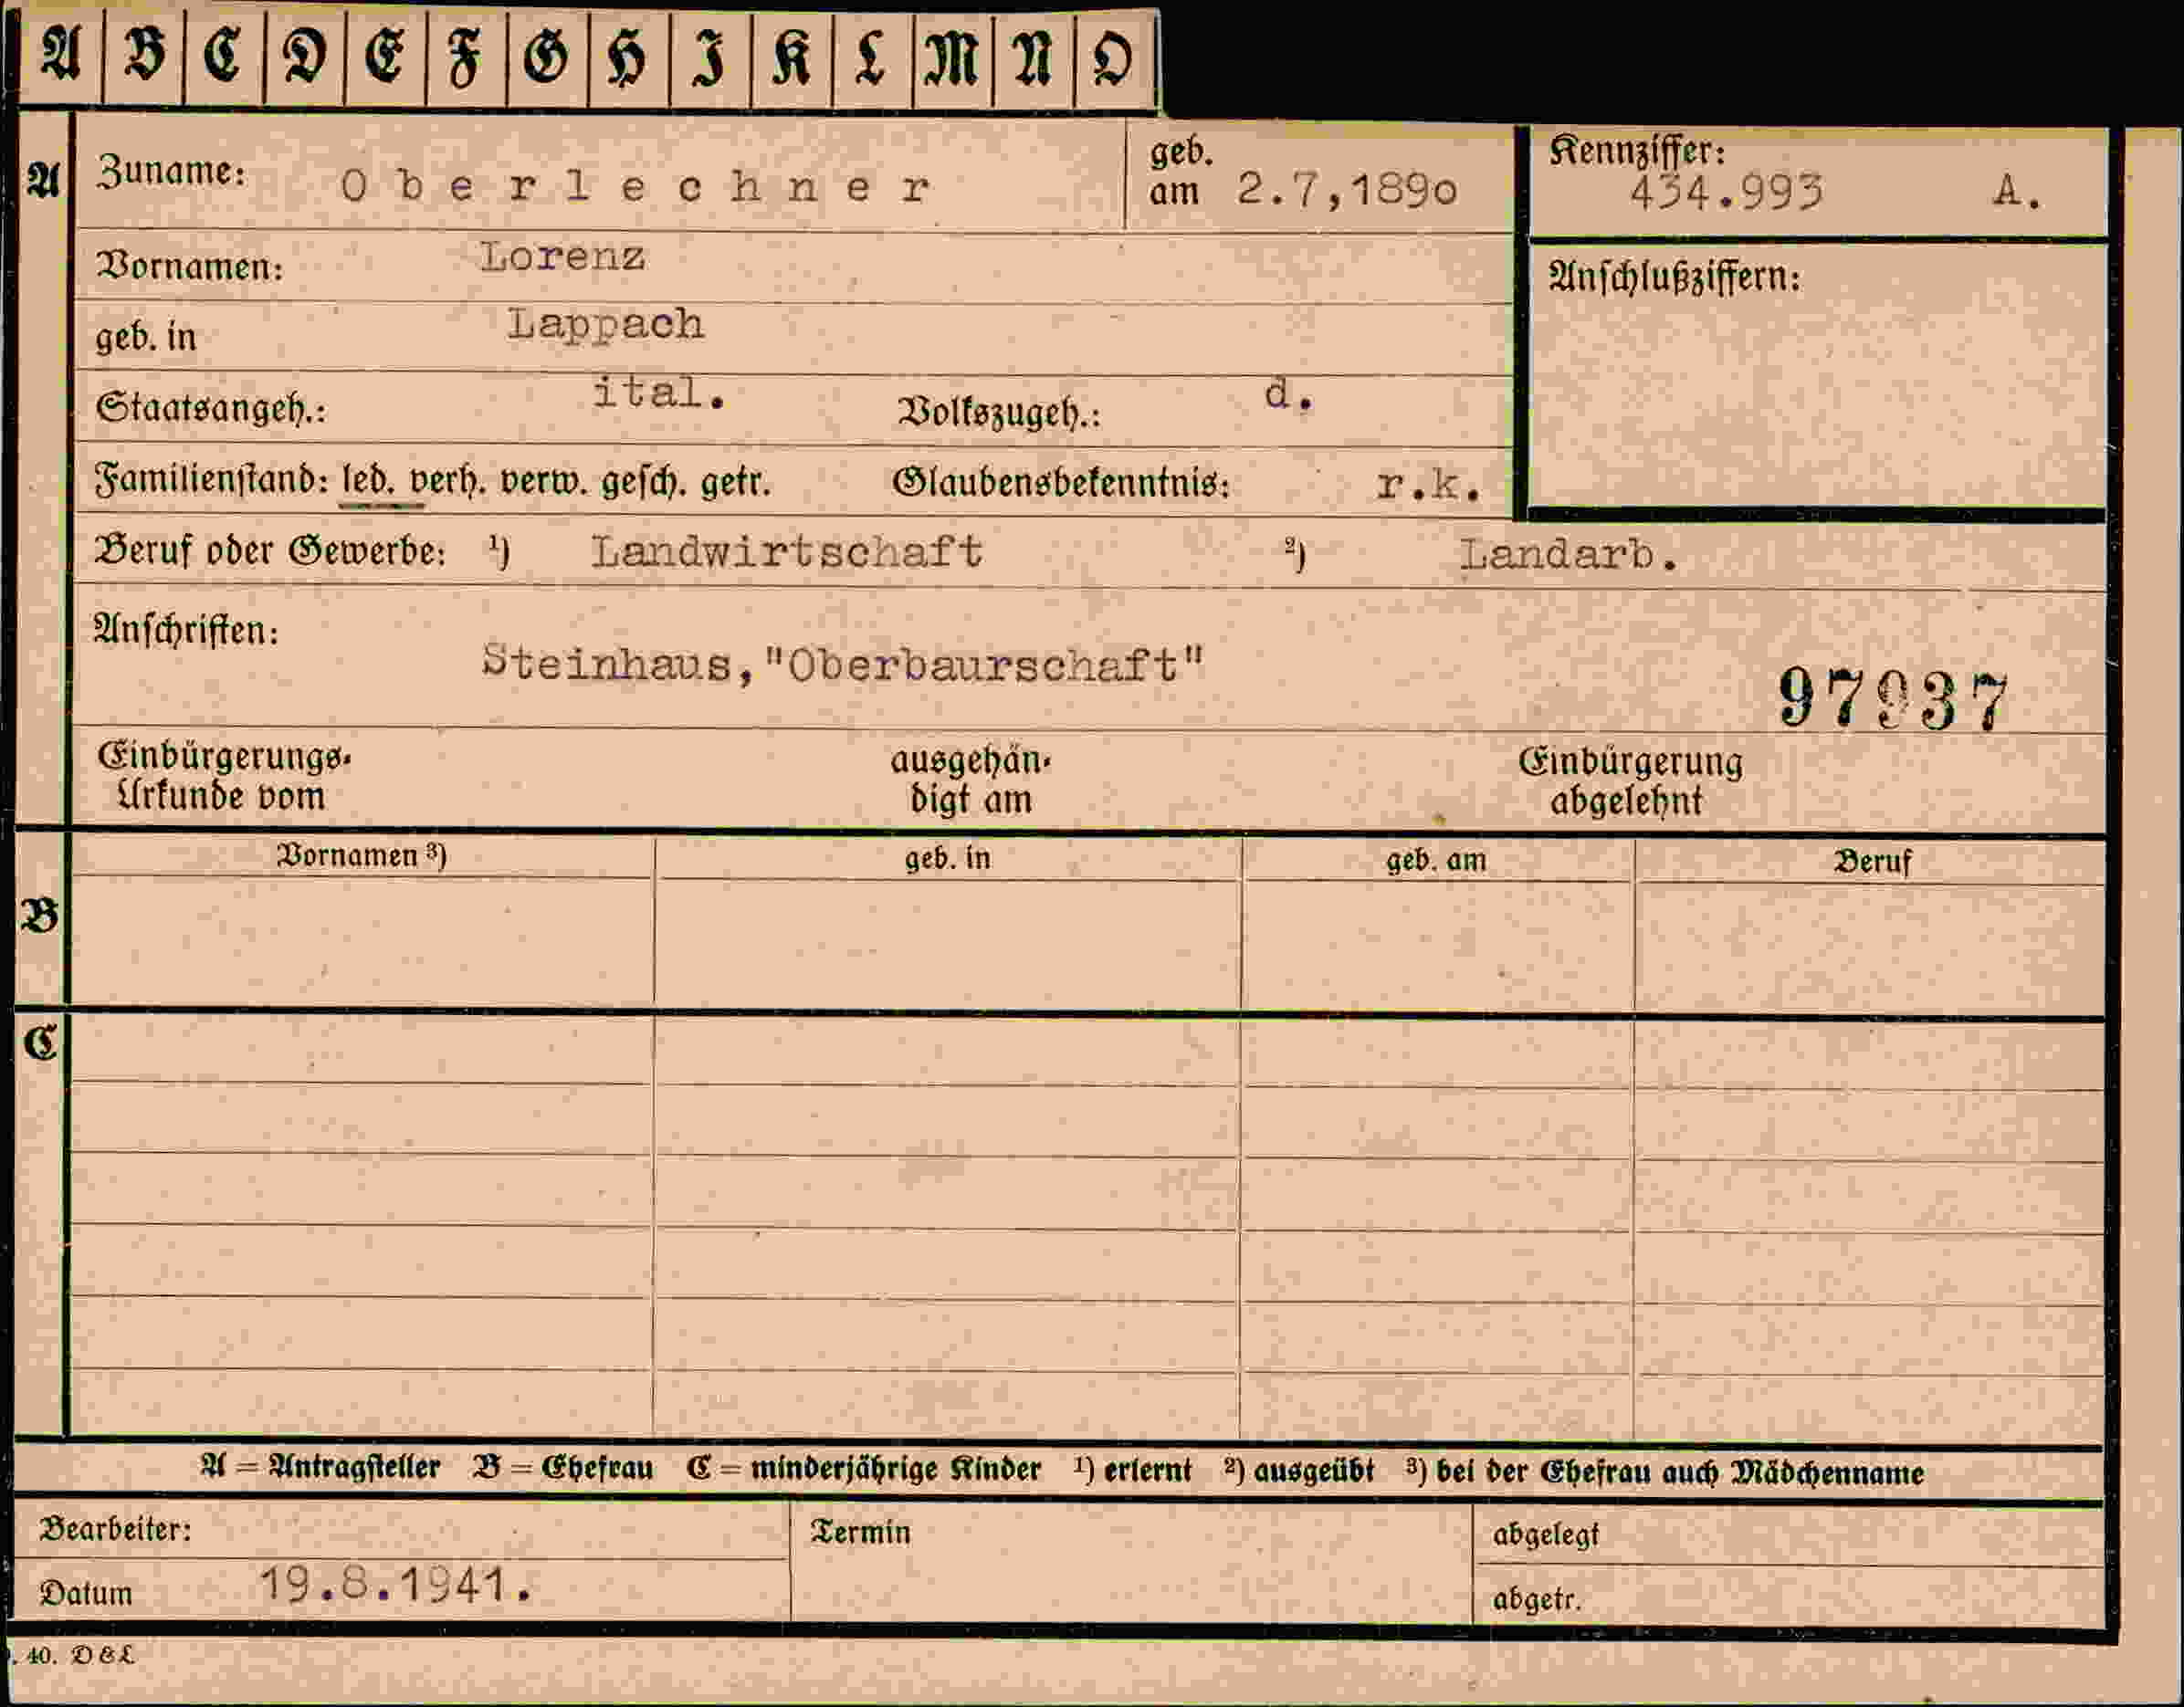 A B C D E F G H I K L M N O
A Zuname: Oberlechner geb. am 2.7,1890 Kennziffer: 434.993 A.
Vornamen: Lorenz Anschlußziffern:
geb. in Lappach
Staatsangeh.: ital. Volkszugeh.: d.
Familienstand: led. verh. verw. gesch. getr. Glaubensbekenntnis: r.k.
Beruf oder Gewerbe: ¹) Landwirtschaft ²) Landarb.
Anschriften:
Steinhaus,"Oberbaurschaft"
97937
Einbürgerungs- ausgehän- Einbürgerung
Urkunde vom digt am abgelehnt
Vornamen ³) geb. in geb. am Beruf
B
C
A = Antragsteller B = Ehefrau C = minderjährige Kinder ¹) erlernt ²) ausgeübt ³) bei der Ehefrau auch Mädchenname
Bearbeiter: Termin abgelegt
Datum 19.8.1941. abgetr.
. 40. D & L